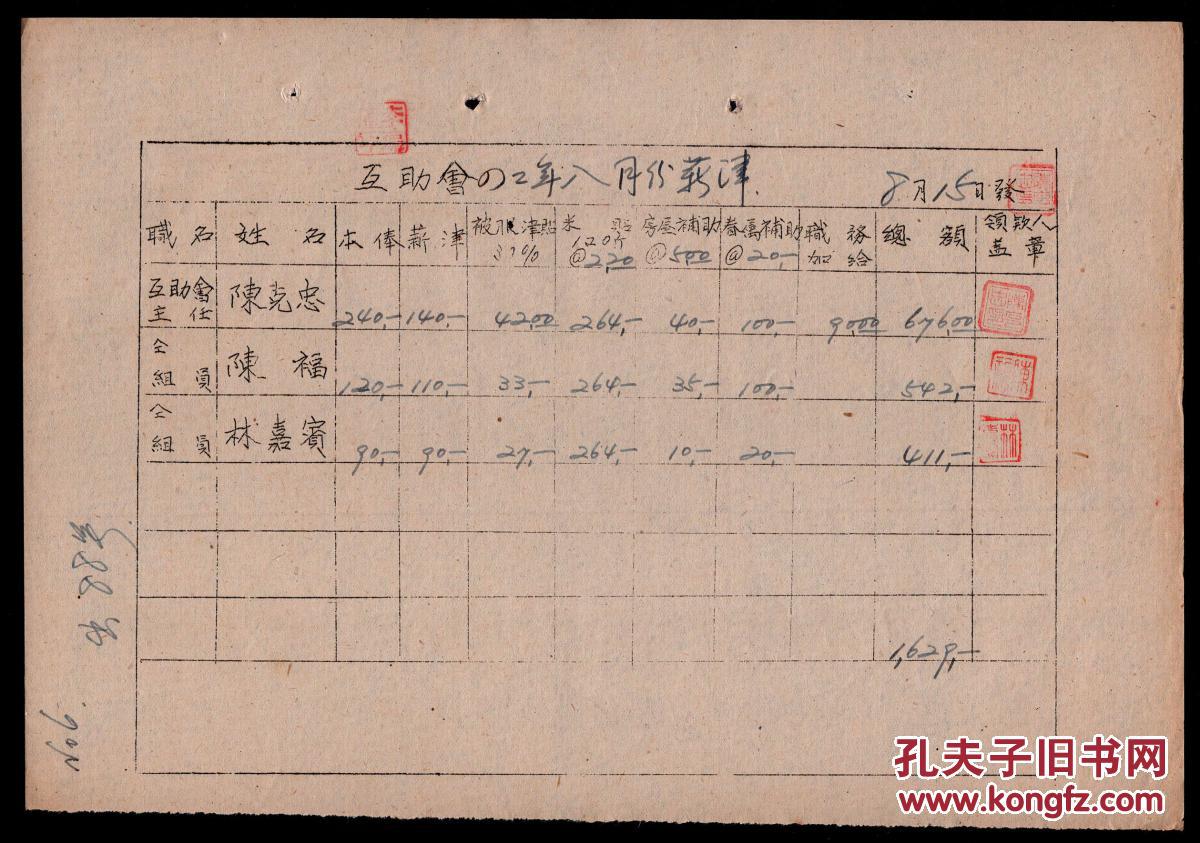 互助會の二年八月份薪津
8月15日發
職名 姓名 本俸 薪津 被服津貼 30% 米貼 120斤 @2,20 房屋補助 @500 眷屬補助 @20,- 職務加給 總額 領款人蓋章
互助會主任 陳克忠 240,- 140,- 42,00 264,- 40,- 100,- 90,00 676,00
仝組員 陳福 120,- 110,- 33,- 264,- 35,- 100,- 542,-
仝組員 林嘉賓 90,- 90,- 27,- 264,- 10,- 20,- 411,-
1,629,-
支88号
No6.
孔夫子旧书网
www.kongfz.com